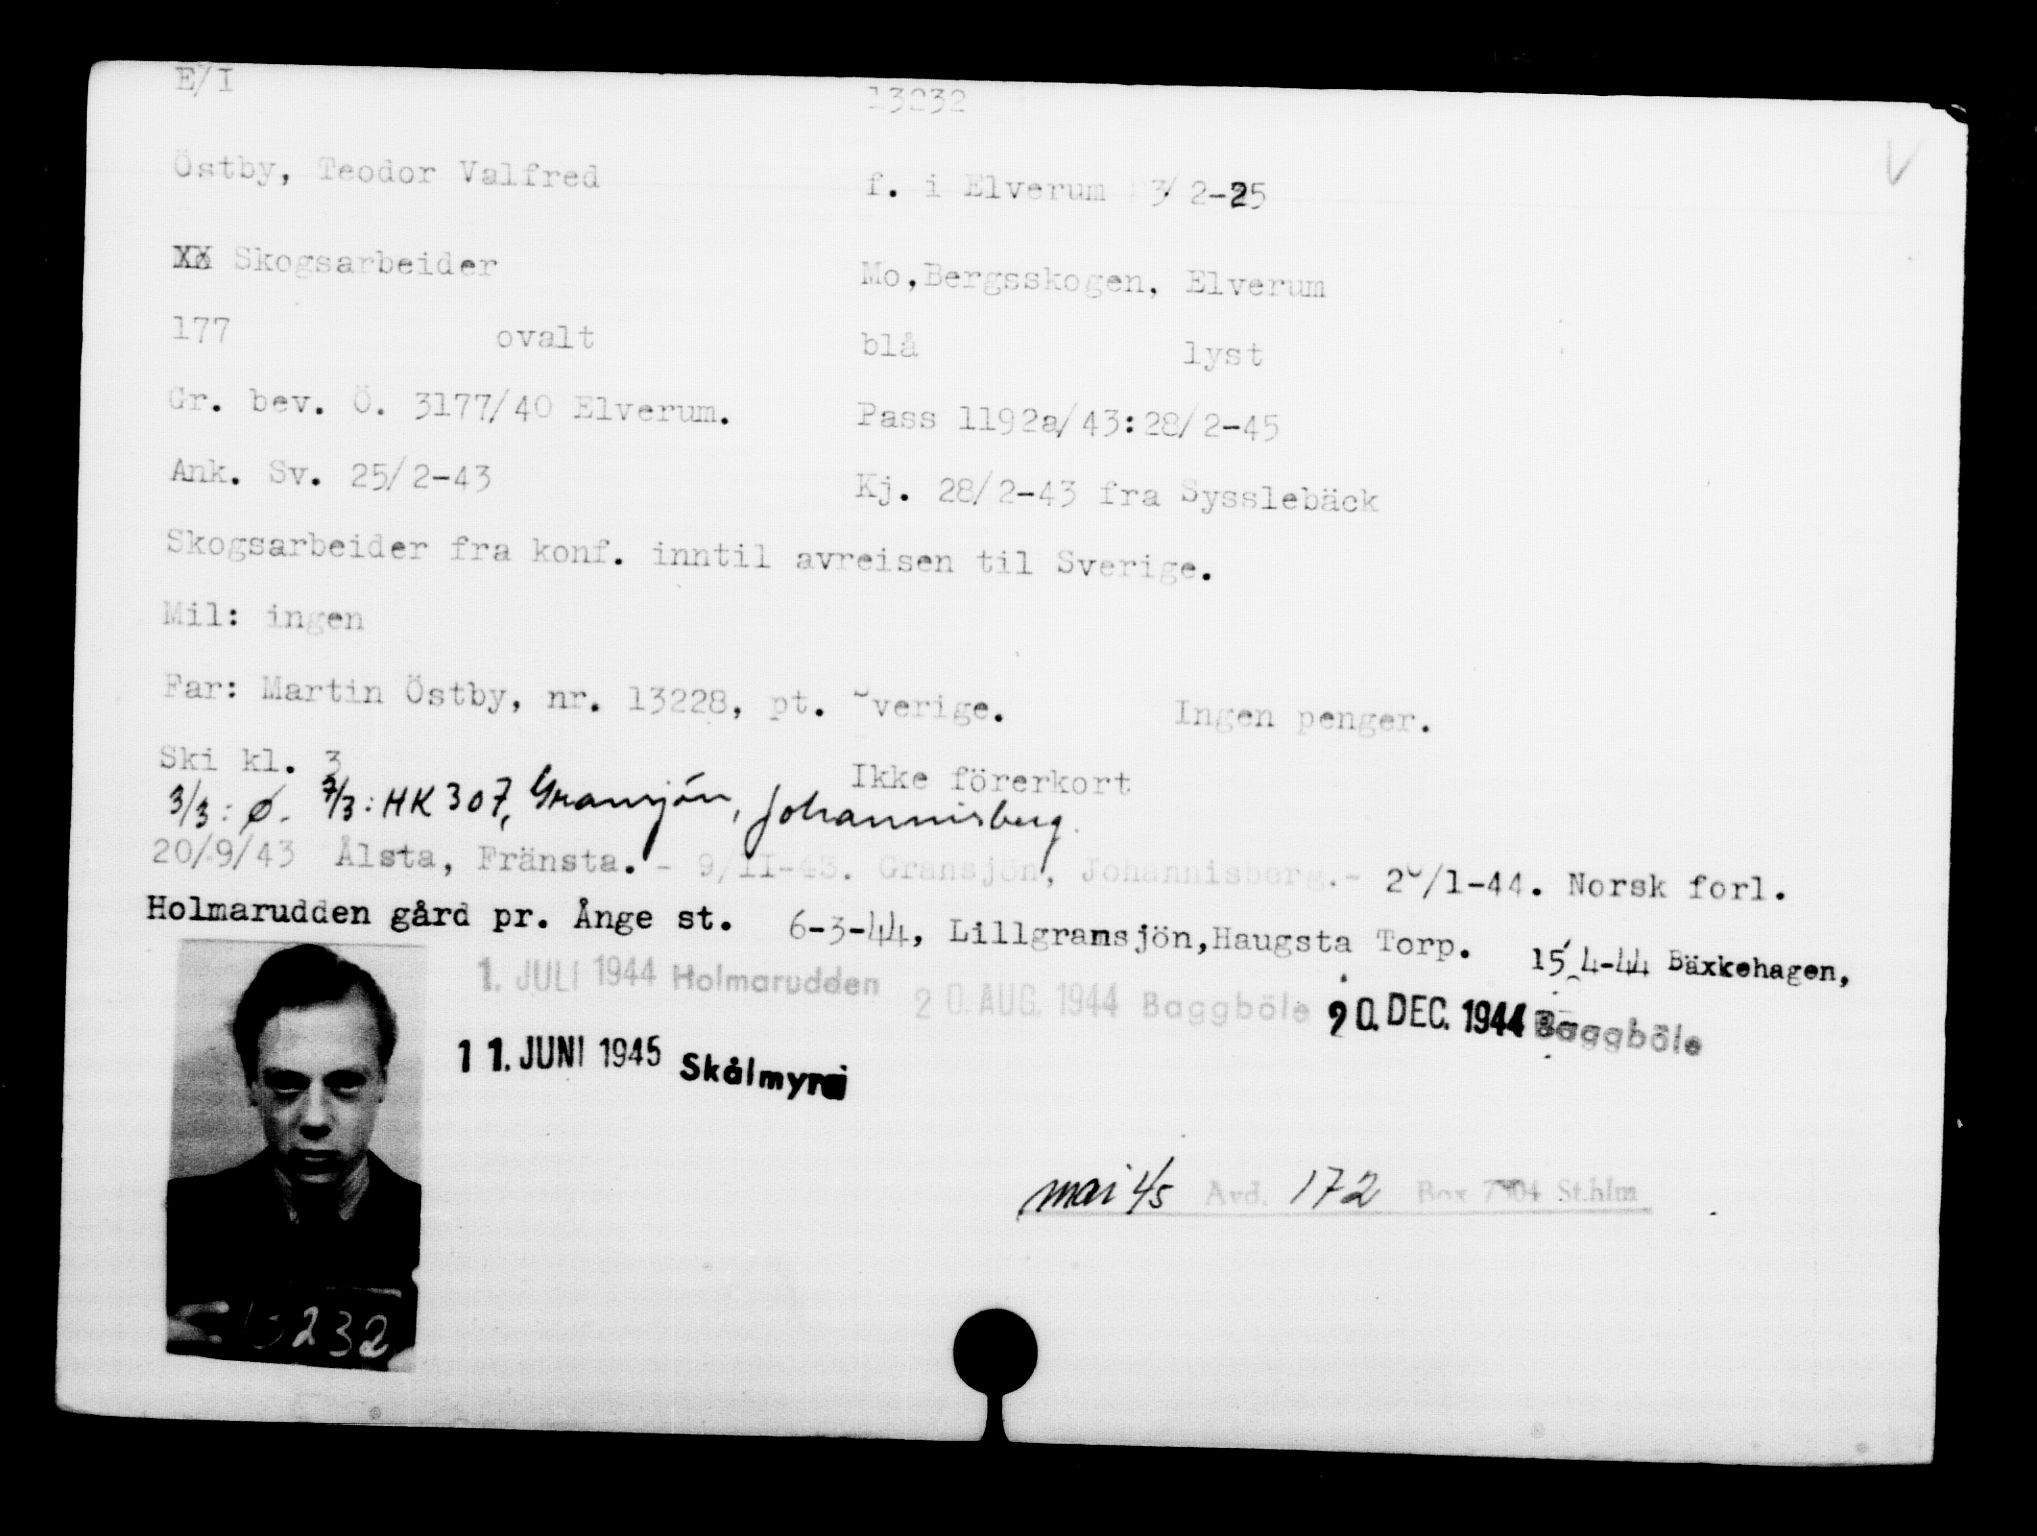 E/I 13232
V
Östby, Teodor Valfred f. i Elverum 3/2-25
Skogsarbeider Mo,Bergsskogen, Elverum
177 ovalt blå lyst
Gr. bev. Ö. 3177/40 Elverum. Pass 1192a/43:28/2-45
Ank. Sv. 25/2-43 Kj. 28/2-43 fra Sysslebäck
Skogsarbeider fra konf. inntil avreisen til Sverige.
Mil: ingen
Far: Martin Östby, nr. 13228, pt. Sverige. Ingen penger.
Ski kl. 3 Ikke förerkort
3/3: Ø. 7/3: HK 307, Gransjön, Johannisberg.
20/9/43 Ålsta, Fränsta. - 9/II-43. Gransjön, Johannisberg.- /1-44. Norsk forl.
Holmarudden gård pr. Ånge st. 6-3-44, Lillgransjön,Haugsta Torp. 15/4-44 Bäxkehagen,
1. JULI 1944 Holmarudden 20. AUG. 1944 Baggböle 20. DEC. 1944 Baggböle
11. JUNI 1945 Skålmyra
mai 4/5 Avd. 172 Box 7904 St.hlm
13232